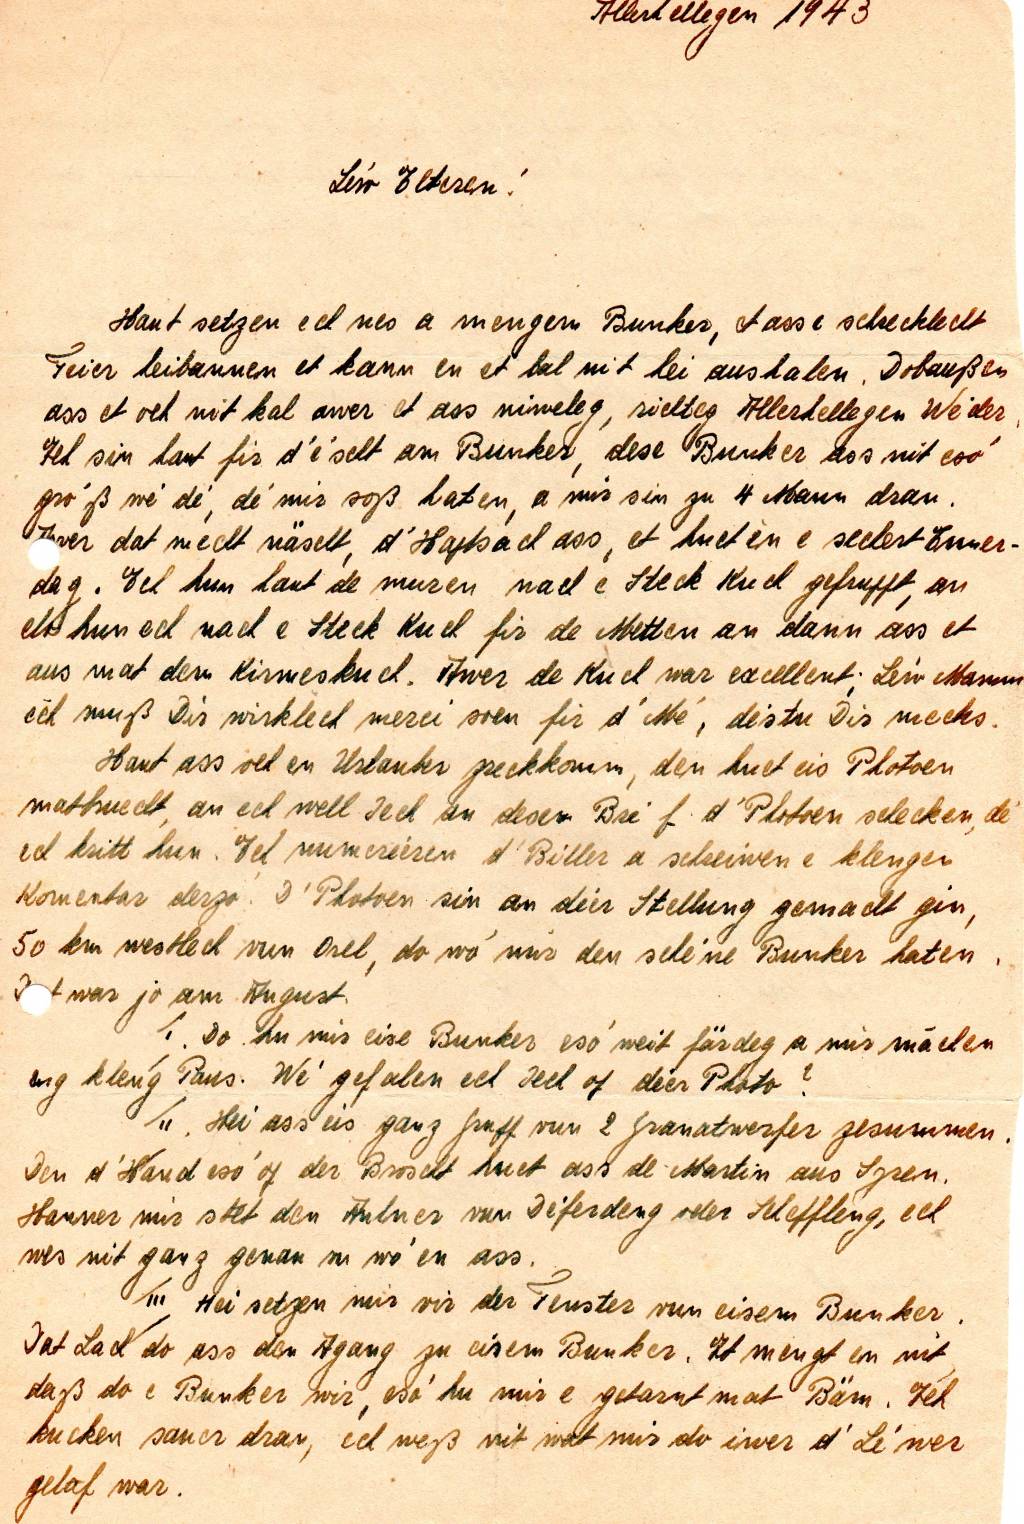 Allerhellegen 1943
Léiw Elteren!
Haut setzen ech nes a mengem Bunker, et ass e schrecklecht
Feier heibannen et kann en et bal nit hei aushalen. Dobaußen
ass et och nit kal awer et ass niweleg, richteg Allerhellegen Wéder.
Ech sin haut fir d'éischt am Bunker, dese Bunker ass nit esó
gróß wé dé, dé mir soß haten, a mir sin zu 4 Mann dran.
Awer dat mecht näscht, d'Haptsach ass, et huet én e sechert Enner-
dag. Ech hun haut de muren nach e Steck Kuch gefrupft, an
elo hun ech nach e Steck Kuch fir de Metten an dann ass et
aus mat dem Kirmeskuch. Awer de Kuch war excellent; Léiw Mamm
ech muß Dir wirklech merci soen fir d'Mé, déstu Dir mechs.
Haut ass och en Urlauber zreckkomm, den huet eis Photoen
matbruecht, an ech well Iech an desem Bréif d'Photoen schecken, dé
ech kritt hun. Ech numeréiren d'Biller a schreiwen e klengen
Komentar derzó. D'Photoen sin an déer Stellung gemacht gin,
50 km westlech vun Orel, do wó mir den schéine Bunker haten.
Dat war jo am August.
I. Do hu mir eise Bunker esó weit färdeg a mir mächen
eng kléng Paus. Wé gefalen ech Iech of déer Photo?
II. Hei ass eis ganz Grupp vun 2 Granatwerfer zesummen.
Den d'Hand esó of der Broscht huet ass de Martin aus Syren.
Hanner mir stét den vun Déferdeng oder Scheffleng, ech
wes nit ganz genau vu wó en ass.
III. Hei setzen mir vir der Fenster vun eisem Bunker.
Dat Lach do ass den Agang zu eisem Bunker. Et mengt en nit
daß do e Bunker wir, esó hu mir e getarnt mat Bäm. Ech
kucken sauer dran, ech weß nit wat mir do iwer d'Léwer
gelaf war.